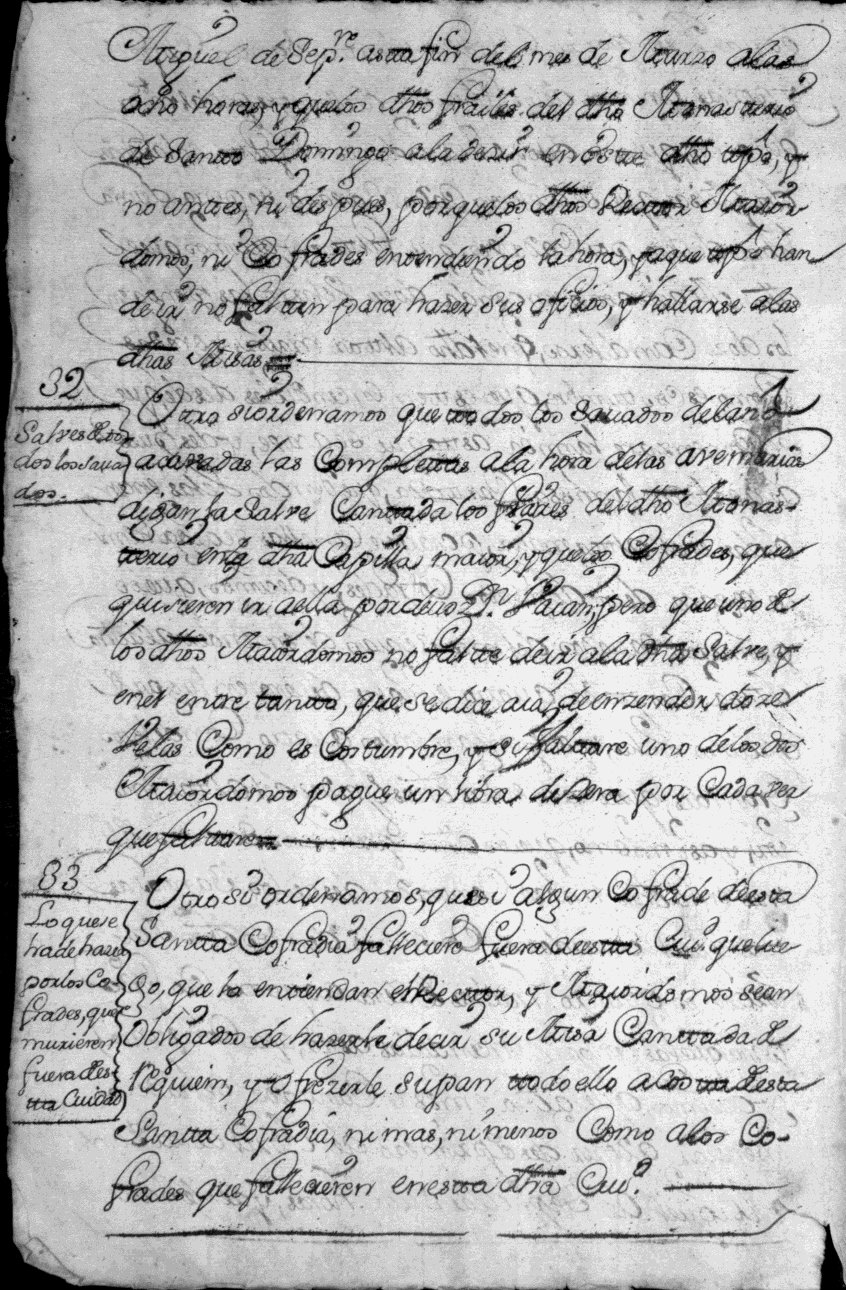 Miguel de Sepre. asta fin del mes de Marzo alas
ocho horas, y quelos dhos frailes del dho Monasterio
de Santo Domingo ala dezir en este dho tpo, y
no antes, ni despues, porquelos dhos Rector Maior
domos, ni Cofrades entendiendo la hora, y aque tpo han
de ir no falten para hazer sus oficios, y hallarse alas
dhas Misas
32
Salves to
dos los Sava
dos.
Otro si ordenamos que todos los Savados del año
acavadas las Completas ala hora delas avemarias
digan la Salve Cantada los frailes del dho Monas-
terio en la dha Capilla maior, y quelos Cofrades, que
quisieren ir aella por devozn. Vaian, pero que uno de
los dhos Maiordomos no falte de ir ala dha Salve, y
enel entre tanto, que se dice aia de enzender doze
Velas Como es Costumbre, y si faltare uno delos dos
Maiordomos pague un libra de Zera por Cada vez
que faltare
33
Lo que se
ha de hazer
por los Co-
frades, que
murieren
fuera des-
ta Cuidad
Otro si ordenamos, que si algun Cofrade desta
Santta Cofradia falleciere fuera desta Ciud. que lue
go, que lo entiendan el Rector, y Maiordomos sean
Obligados de hazerle decir su Misa Canttada de
Requiem, y ofrezerle su pan todo ello a costa desta
Santta Cofradia, ni mas, ni menos Como alos Co-
frades que fallecieren en esta dha Ciud.